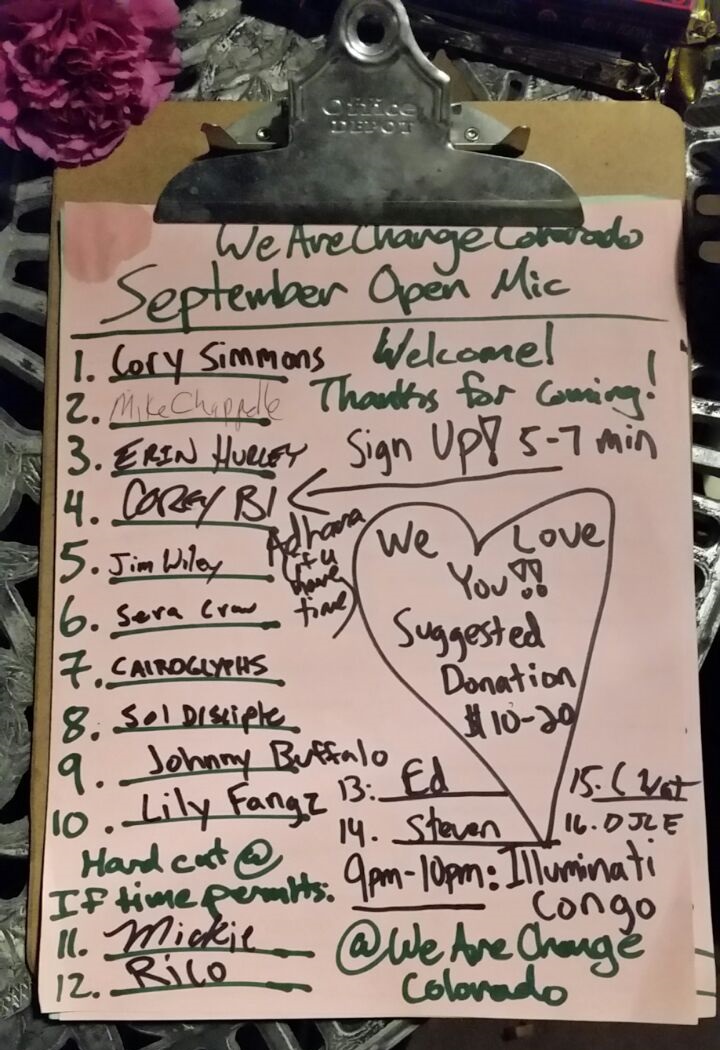 Office
DEPOT
WeAreChangeColorado
September Open Mic
1. Cory Simmons
2. Mike Chappelle
3. ERIN HURLEY
4. COREY BI
5. Jim Wiley
6. Sera Craw
7. CAIROGLYPHS
8. Sol DISCIPLE
9. Johnny Buffalo
10. Lily Fangz
Hard cut @
If time permits:
11. Mickie
12. Rico
Welcome!
Thanks for coming!
Sign Up! 5-7 min
Adhara
if u
have
time
We Love
You!!
Suggested
Donation
$10-20
13: Ed
14. Steven
15. C
16. DJLE
9pm-10pm: Illuminati
Congo
@WeAreChange
Colorado